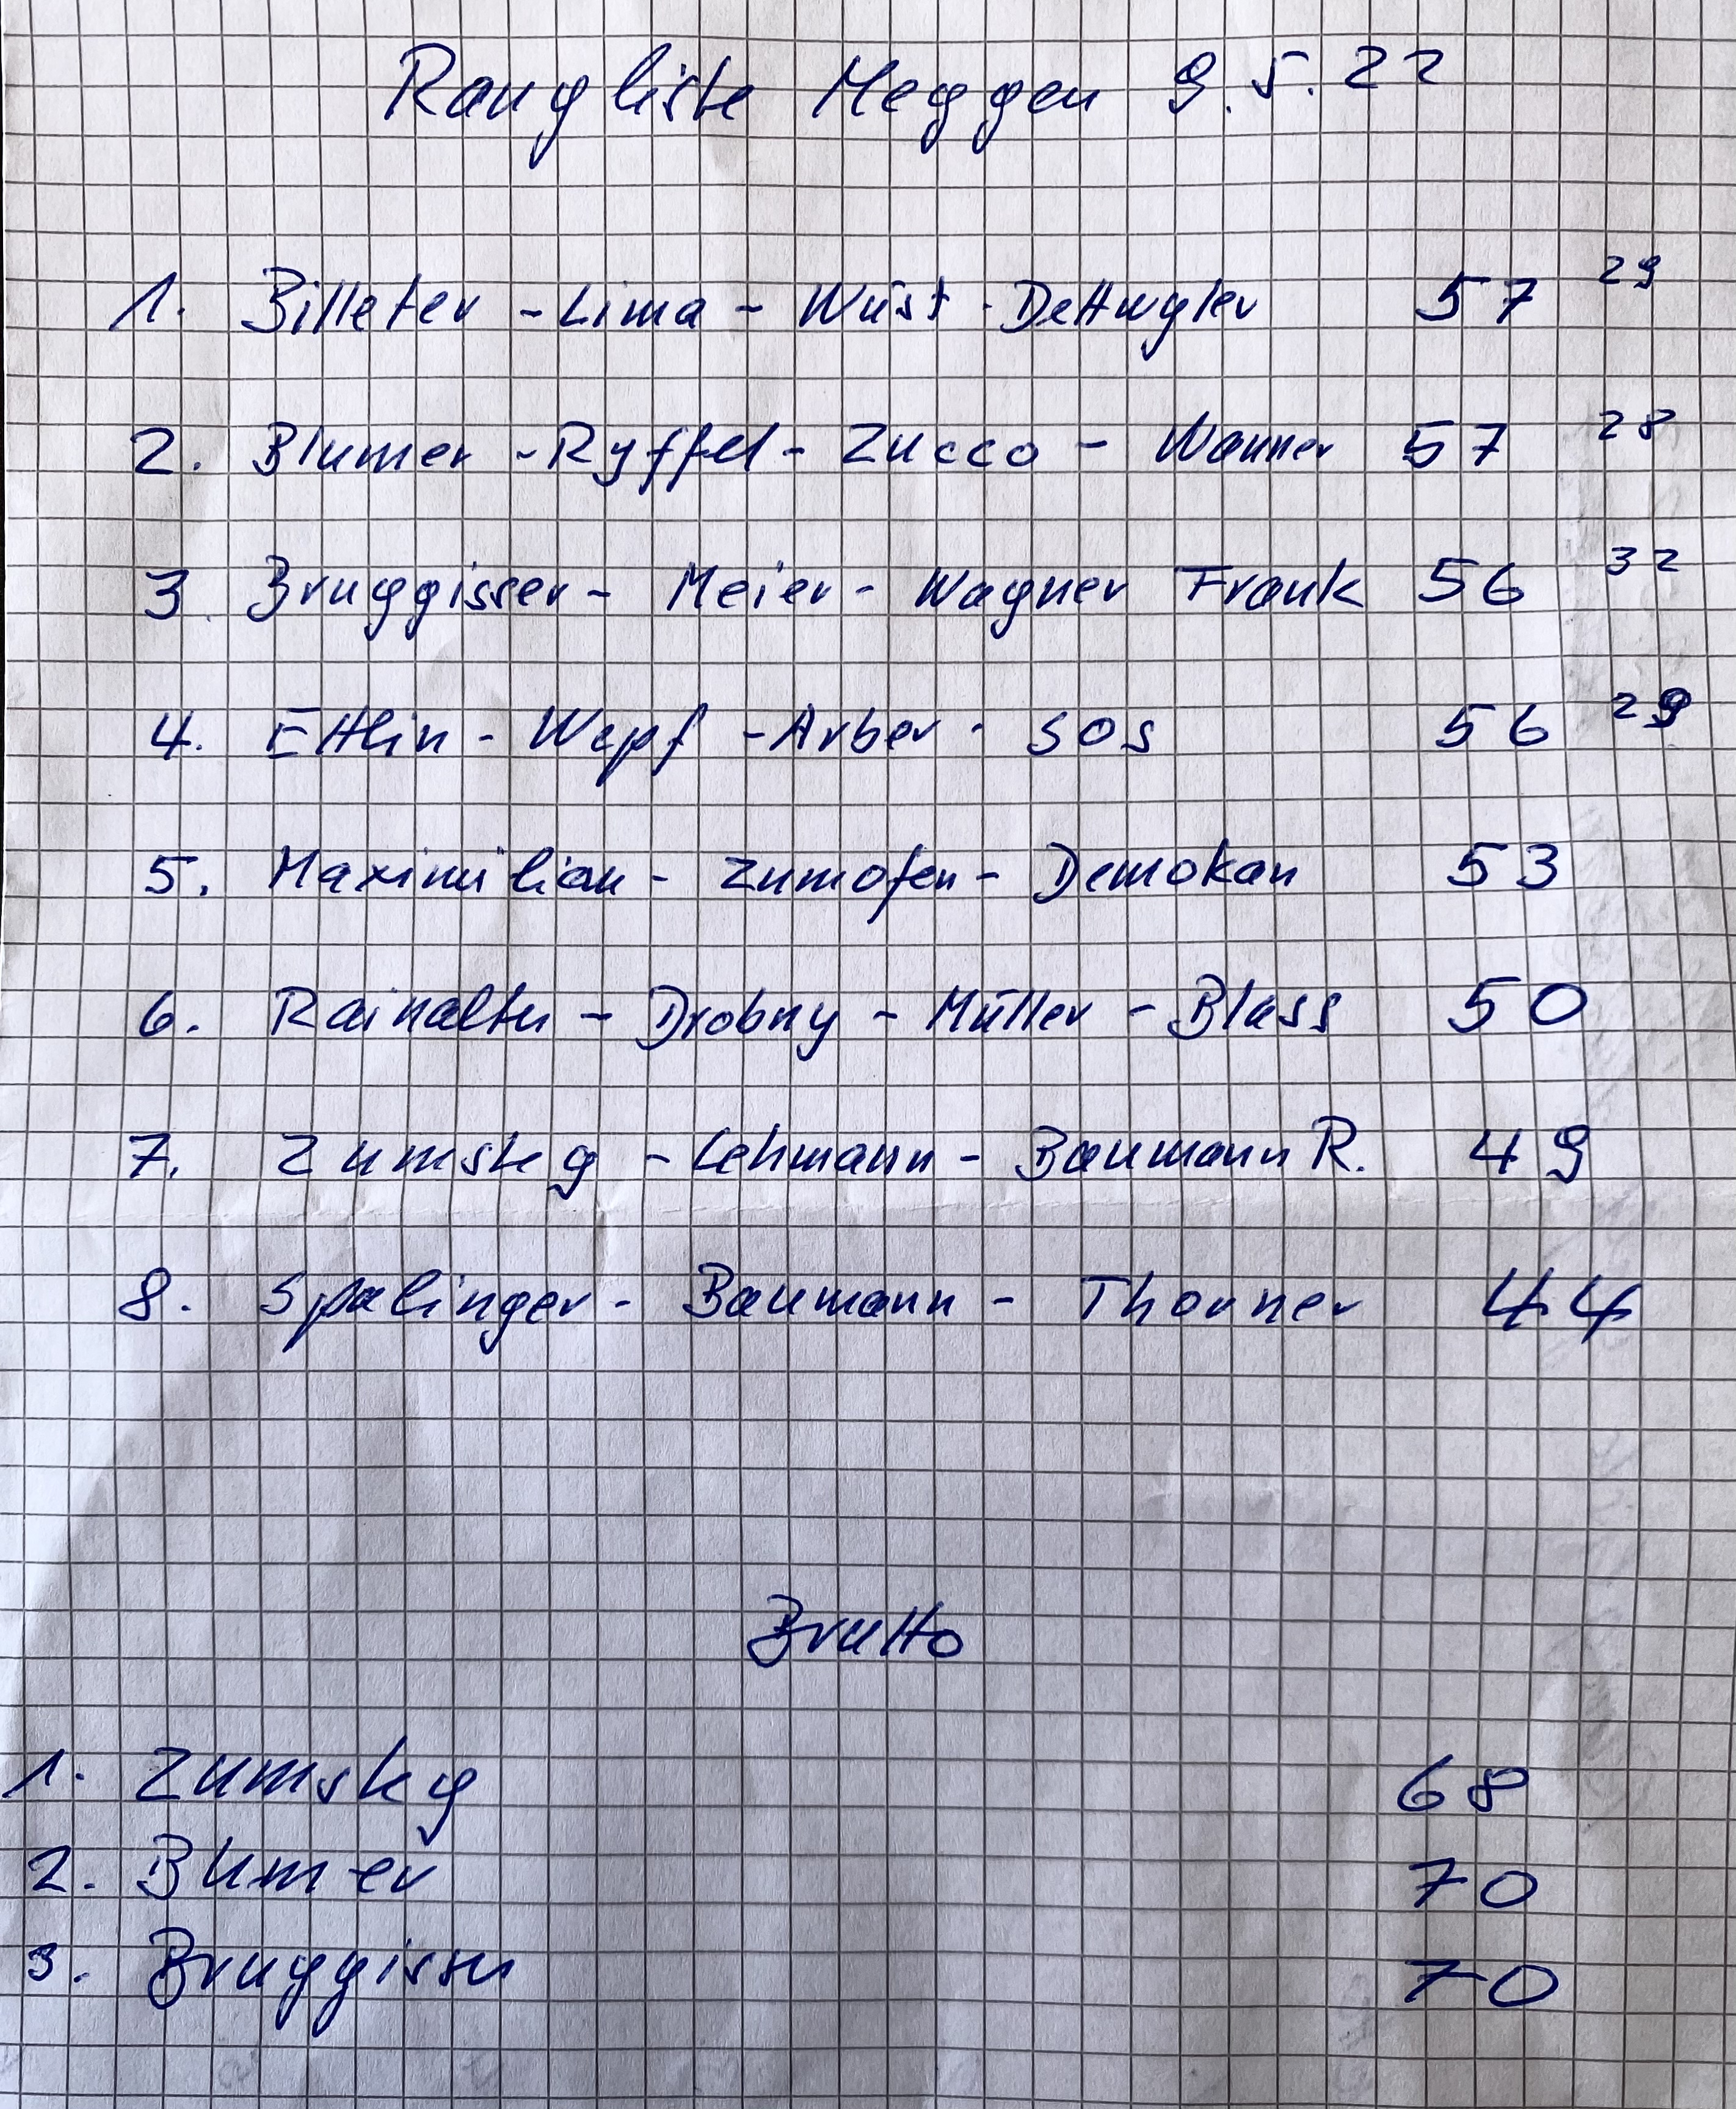 Rangliste Meggen 9.5.22
1. Billeter - Lima - Wüst - Dettwyler 57 29
2. Blumer - Ryffel - Zucco - Wanner 57 28
3. Bruggisser - Meier - Wagner Frank 56 32
4. Ettlin - Wepf - Arber - SOS 56 29
5. Maximilian - Zumofen - Demokan 53
6. Rainalter - Drobny - Müller - Blass 50
7. Zumsteg - Lehmann - Baumann R. 49
8. Spalinger - Baumann - Thorner 44
Brutto
1. Zumsteg 68
2. Blumer 70
3. Bruggisser 70